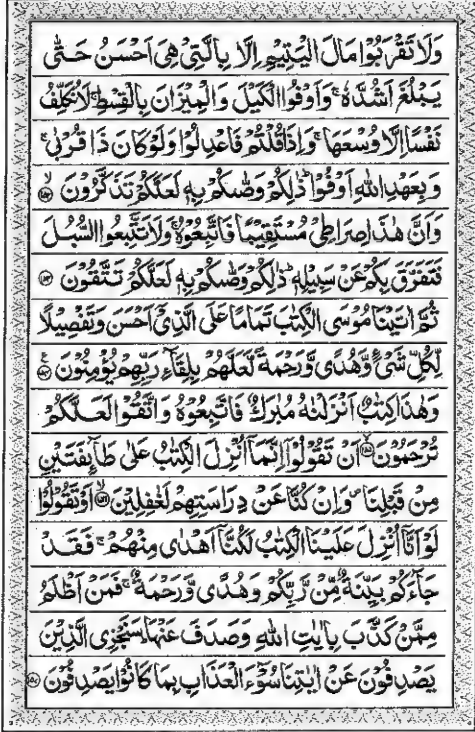 وَلَا تَقْرَبُوْا مَالَ الْيَتِيْمِ اِلَّا بِالَّتِيْ هِيَ اَحْسَنُ حَتّٰى
يَبْلُغَ اَشُدَّهٗ ۚ وَاَوْفُوا الْكَيْلَ وَالْمِيْزَانَ بِالْقِسْطِ ۚ لَا نُكَلِّفُ
نَفْسًا اِلَّا وُسْعَهَا ۚ وَاِذَا قُلْتُمْ فَاعْدِلُوْا وَلَوْ كَانَ ذَا قُرْبٰى ۚ
وَبِعَهْدِ اللّٰهِ اَوْفُوْا ؕ ذٰلِكُمْ وَصّٰىكُمْ بِهٖ لَعَلَّكُمْ تَذَكَّرُوْنَ ۙ﴿۱۵۲﴾
وَاَنَّ هٰذَا صِرَاطِيْ مُسْتَقِيْمًا فَاتَّبِعُوْهُ ۚ وَلَا تَتَّبِعُوا السُّبُلَ
فَتَفَرَّقَ بِكُمْ عَنْ سَبِيْلِهٖ ؕ ذٰلِكُمْ وَصّٰىكُمْ بِهٖ لَعَلَّكُمْ تَتَّقُوْنَ ﴿۱۵۳﴾
ثُمَّ اٰتَيْنَا مُوْسَى الْكِتٰبَ تَمَامًا عَلَى الَّذِيْٓ اَحْسَنَ وَتَفْصِيْلًا
لِّكُلِّ شَيْءٍ وَّهُدًى وَّرَحْمَةً لَّعَلَّهُمْ بِلِقَآءِ رَبِّهِمْ يُؤْمِنُوْنَ ﴿۱۵۴﴾
وَهٰذَا كِتٰبٌ اَنْزَلْنٰهُ مُبٰرَكٌ فَاتَّبِعُوْهُ وَاتَّقُوْا لَعَلَّكُمْ
تُرْحَمُوْنَ ۙ﴿۱۵۵﴾ اَنْ تَقُوْلُوْٓا اِنَّمَآ اُنْزِلَ الْكِتٰبُ عَلٰى طَآئِفَتَيْنِ
مِنْ قَبْلِنَا ۪ وَاِنْ كُنَّا عَنْ دِرَاسَتِهِمْ لَغٰفِلِيْنَ ۙ﴿۱۵۶﴾ اَوْ تَقُوْلُوْا
لَوْ اَنَّآ اُنْزِلَ عَلَيْنَا الْكِتٰبُ لَكُنَّآ اَهْدٰى مِنْهُمْ ۚ فَقَدْ
جَآءَكُمْ بَيِّنَةٌ مِّنْ رَّبِّكُمْ وَهُدًى وَّرَحْمَةٌ ۚ فَمَنْ اَظْلَمُ
مِمَّنْ كَذَّبَ بِاٰيٰتِ اللّٰهِ وَصَدَفَ عَنْهَا ؕ سَنَجْزِي الَّذِيْنَ
يَصْدِفُوْنَ عَنْ اٰيٰتِنَا سُوْٓءَ الْعَذَابِ بِمَا كَانُوْا يَصْدِفُوْنَ ﴿۱۵۷﴾